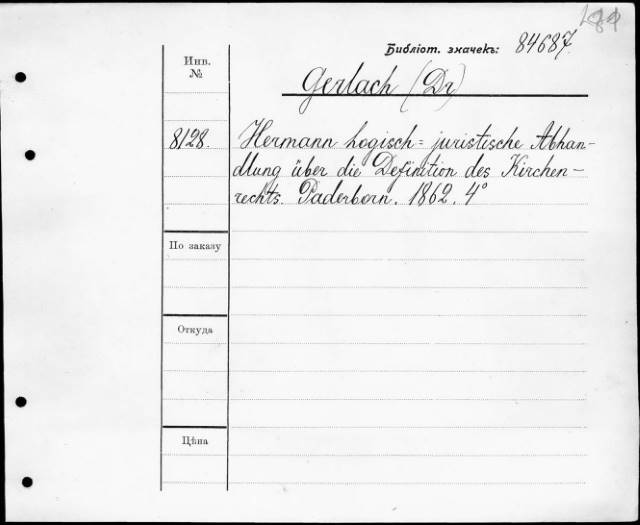 Библіот. значекъ: 84687.
Инв. №
Gerlach (Dr)
8128. Hermann Logisch= juristische Abhan-
dlung über die Definition des Kirchen-
rechts. Paderborn. 1862. 4°
По заказу
Откуда
Цѣна